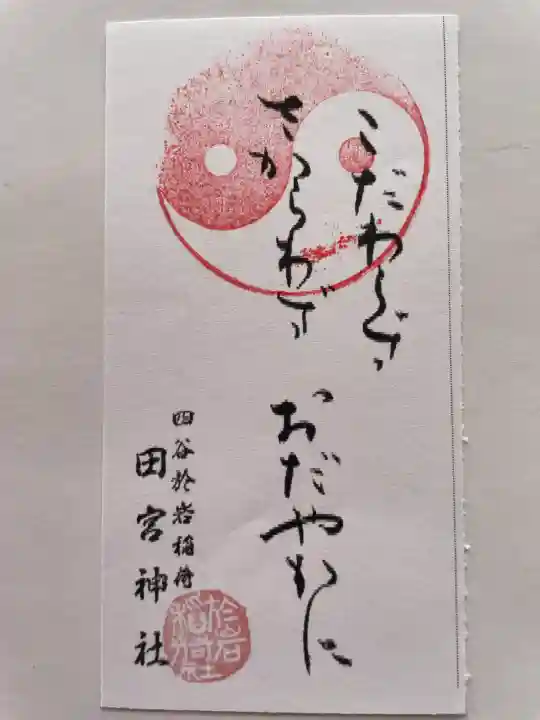 こだわらず
さからわず
おだやかに
四谷於岩稲荷
田宮神社
於岩
稲荷社